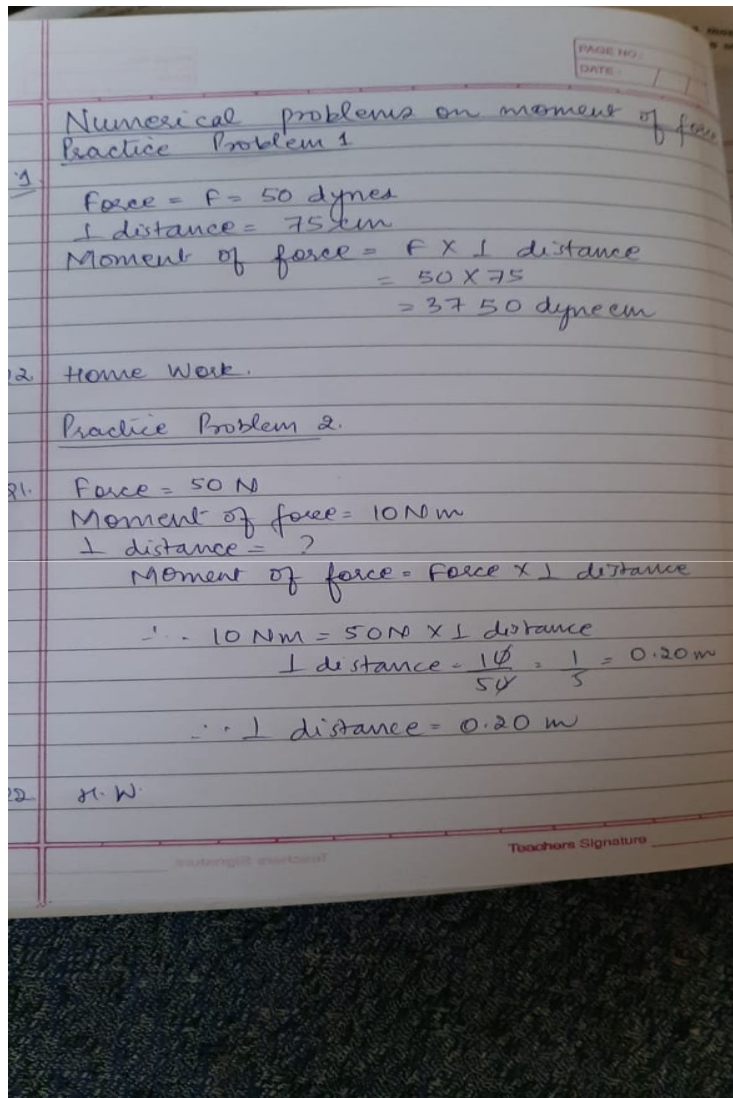 PAGE NO.:
DATE: / /
Numerical problems on moment of force
Practice Problem 1
1.
Force = F = 50 dynes
⊥ distance = 75 cm
Moment of force = F X ⊥ distance
= 50 X 75
= 3750 dyne cm
2. Home Work.
Practice Problem 2.
Q1. Force = 50 N
Moment of force = 10 N m
⊥ distance = ?
Moment of force = Force X ⊥ distance
∴ 10 Nm = 50N X ⊥ distance
⊥ distance = 10/50 = 1/5 = 0.20 m
∴ ⊥ distance = 0.20 m
22 H.W.
Teachers Signature